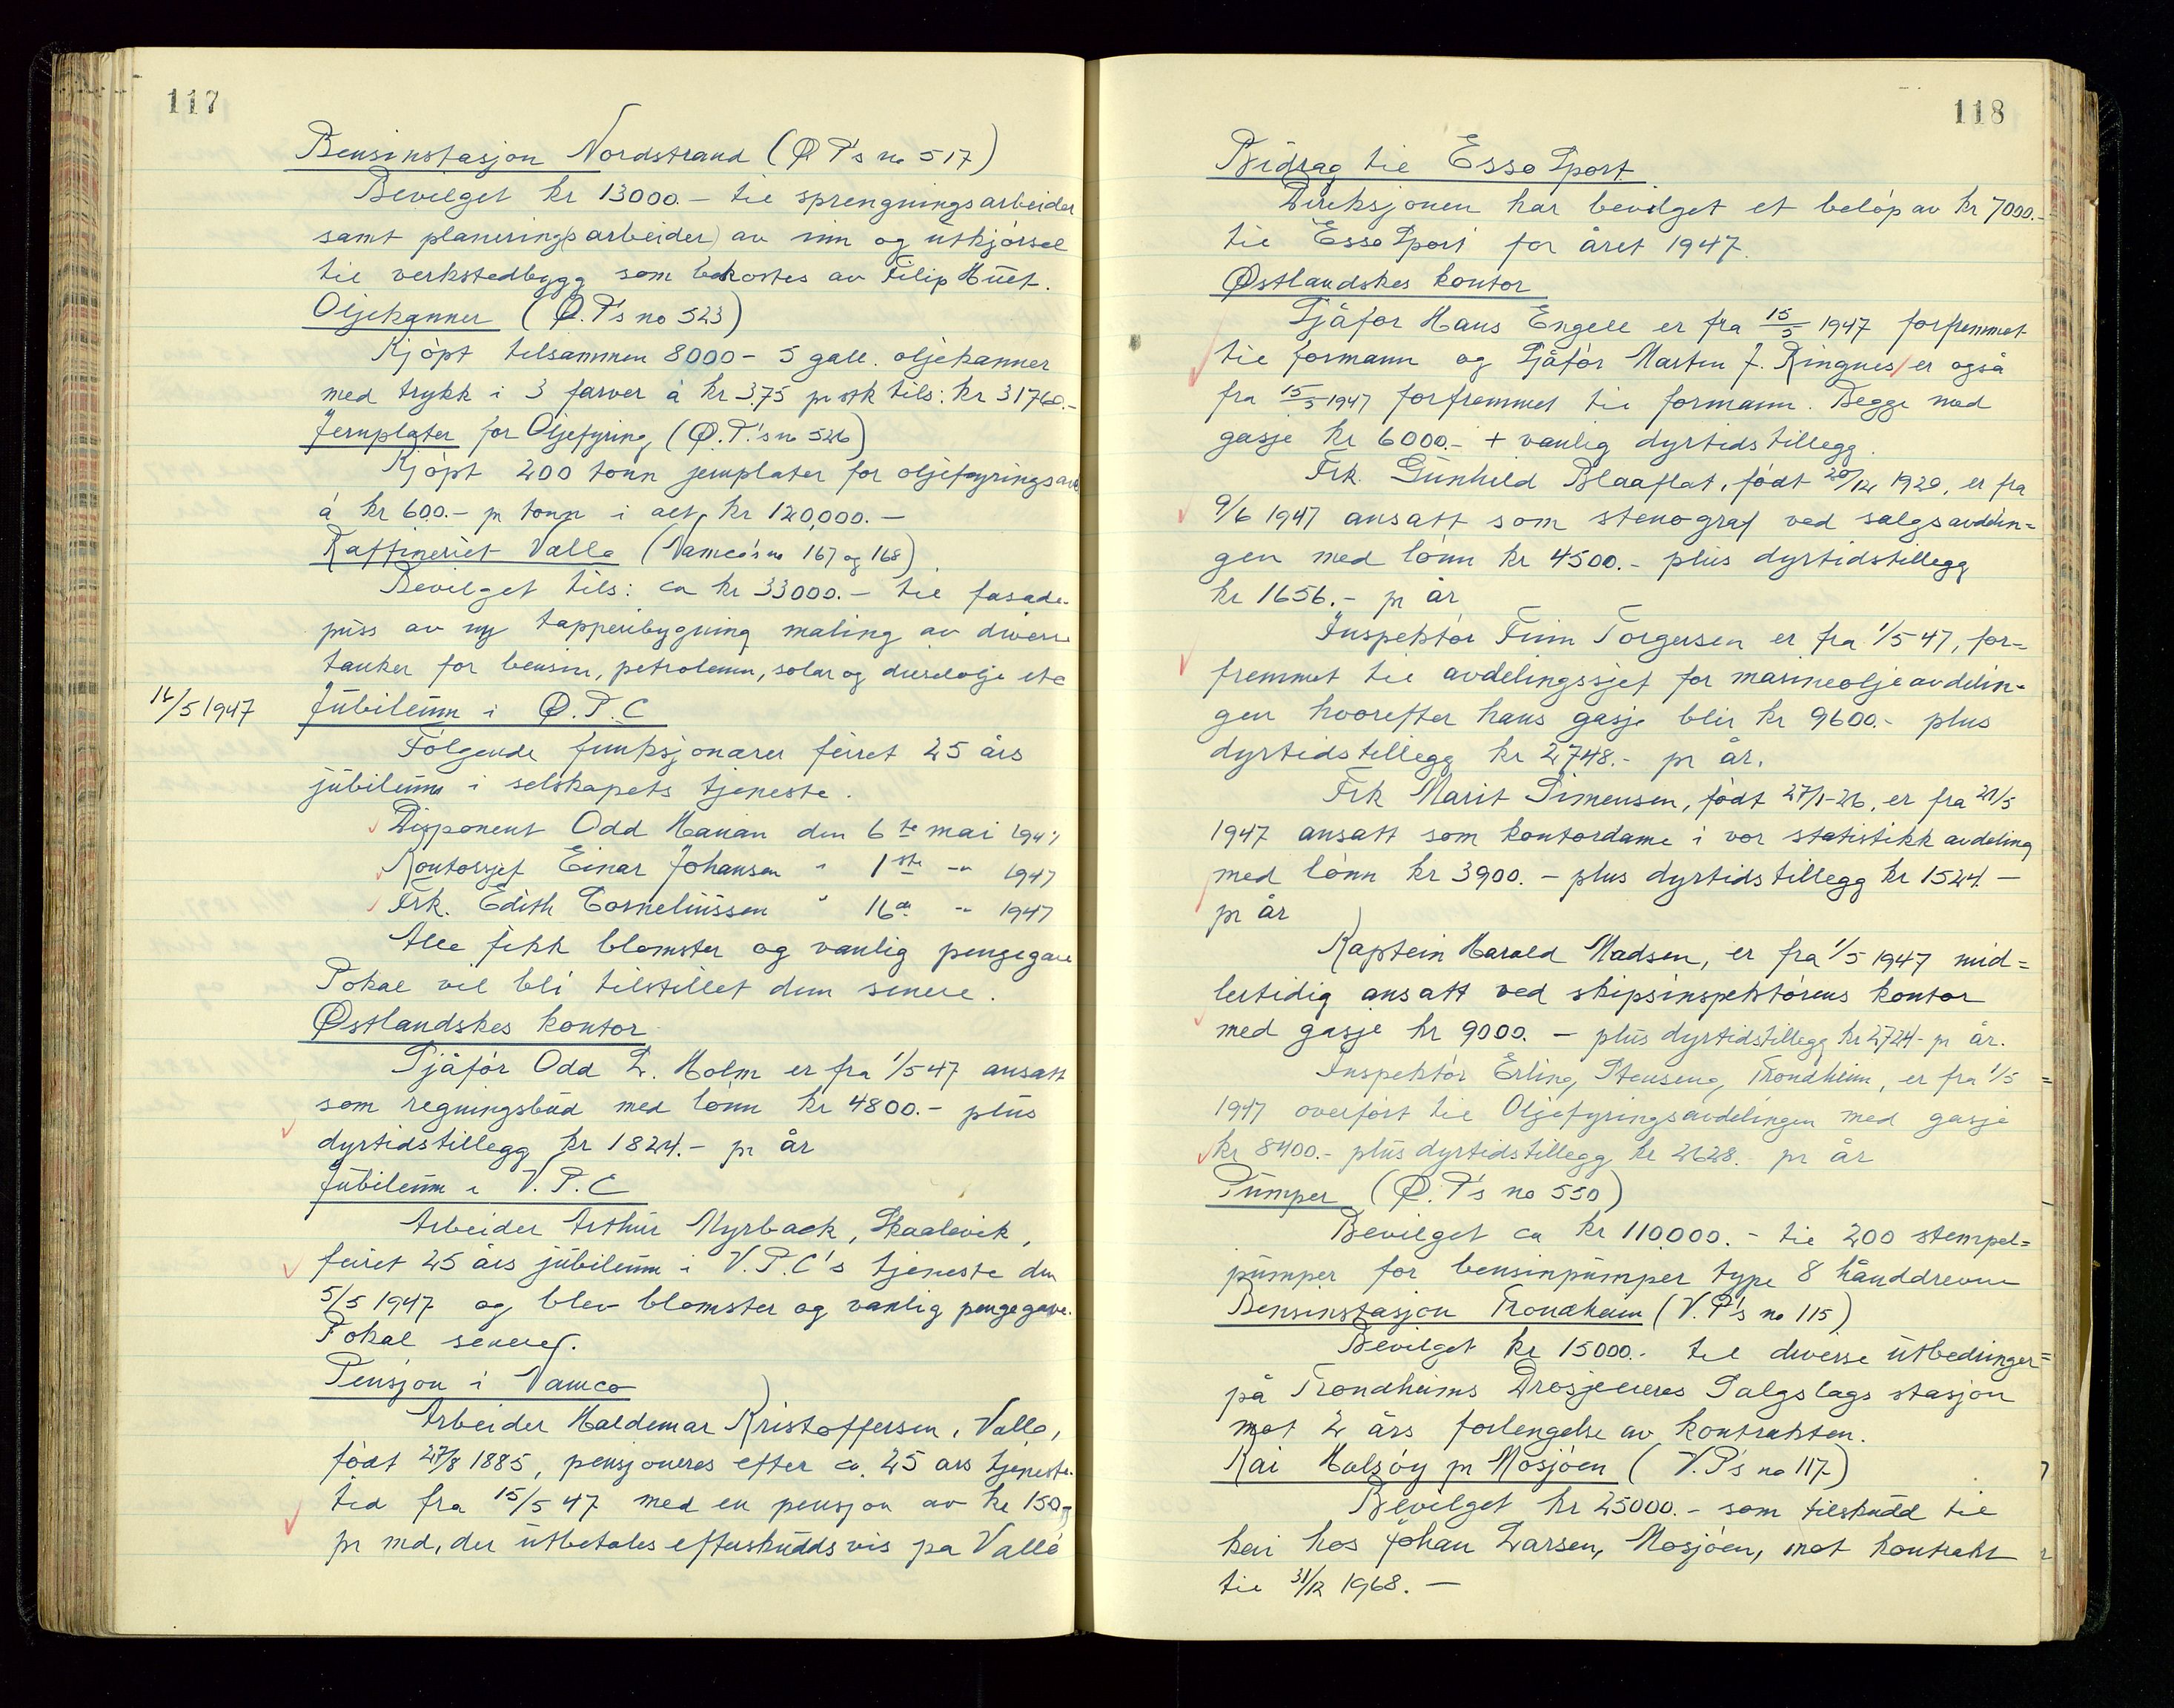 117
Bensinstasjon Nordstrand (Ø P's no 517)
Bevilget kr 13000.- til sprengningsarbeider
samt planering(s arbeider) av inn og utkjørsel
til verkstedbygg som bekostes av Filip Huet.
Oljekanner (Ø.P's no 523)
Kjøpt tilsammen 8000 - 5 gall. oljekanner
med trykk i 3 farver à kr 3.75 pr stk tils: kr 31760.-
Jernplater for Oljefyring, (Ø.P.'s no 526)
Kjøpt 200 tonn jernplater for oljefyrings
à kr 600.- pr tonn i alt, kr 120,000.-
Raffineriet Vallø (Vamco's no 167 og 168)
Bevilget tils: ca kr 33000.- til fasade-
puss av ny tapperibygning maling av diverse
tanker for bensin, petroleum, solar og dieselolje etc
16/5 1947 Jubileum i Ø.P.C
Følgende funksjonærer feiret 25 års
jubileum i selskapets tjeneste.
Disponent Odd Hanan den 6te mai 1947
Kontorsjef Einar Johansen " 1ste -"- 1947
Frk. Edith Corneliussen " 16de -"- 1947
Alle fikk blomster og vanlig pengegave
Pokal vil bli tilstillet dem senere.
Østlandskes kontor
Sjåfør Odd L. Holm er fra 1/5 47 ansatt
som regningsbud med lønn kr 4800.- plus
dyrtidstillegg kr 1824.- pr år
Jubileum i V.P.C
Arbeider Arthur Myrback, Skaalevik,
feiret 25 års jubileum i V.P.C's tjeneste den
5/5 1947 og blev blomster og vanlig pengegave.
Pokal senere.
Pensjon i Vamco
Arbeider Haldemar Kristoffersen, Vallø,
født 27/8 1885, pensjoneres efter ca. 25 års tjeneste-
tid fra 15/5 47 med en pensjon av kr 150.-
pr md, der utbetales efterskuddsvis på Vallø
118
Bidrag til Esso Sport
Direksjonen har bevilget et beløp av kr 7000.-
til Esso Sport for året 1947.
Østlandskes kontor
Sjåfør Hans Engell er fra 15/5 1947 forfremmet
til formann og Sjåfør Martin J. Ringnes er også
fra 15/5 1947 forfremmet til formann. Begge med
gasje kr 6000.- + vanlig dyrtidstillegg.
Frk. Gunhild Blaaflat, født 20/12 1920, er fra
9/6 1947 ansatt som stenograf ved salgsavdelin=
gen med lønn kr 4500.- plus dyrtidstillegg
kr 1656.- pr år
Inspektør Finn Torgersen er fra 1/5 47, for=
fremmet til avdelingssjef for marineoljeavdelin-
gen hvorefter hans gasje blir kr 9600.- plus
dyrtidstillegg kr 2748.- pr år.
Frk Marit Simensen, født 27/1-26, er fra 21/5
1947 ansatt som kontordame i vor statistikk avdeling
med lønn kr 3900.- plus dyrtidstillegg kr 1524.-
pr år
Kaptein Harald Madsen, er fra 1/5 1947 mid=
lertidig ansatt ved skipsinspektørens kontor
med gasje kr 9000.- plus dyrtidstillegg kr 2724- pr år.
Inspektør Erling Stenseng, Trondheim, er fra 1/5
1947 overført til Oljefyringsavdelingen med gasje
kr 8400.- plus dyrtidstillegg kr 2628. pr år
Pumper (Ø.P's no 550)
Bevilget ca kr 110.000.- til 200 stempel=
pumper for bensinpumper type 8 hånddrevne
Bensinstasjon Trondheim (V.P's no 115)
Bevilget kr 15000.- til diverse utbedringer
på Trondheims Drosjeeieres Salgslags stasjon
mot 2 års forlengelse av kontrakten.
Kai Halsøy pr Mosjøen (V.P's no 117)
Bevilget kr 25000.- som tilskudd til
kai hos Johan Larsen, Mosjøen, mot kontrakt
til 31/12 1968.-